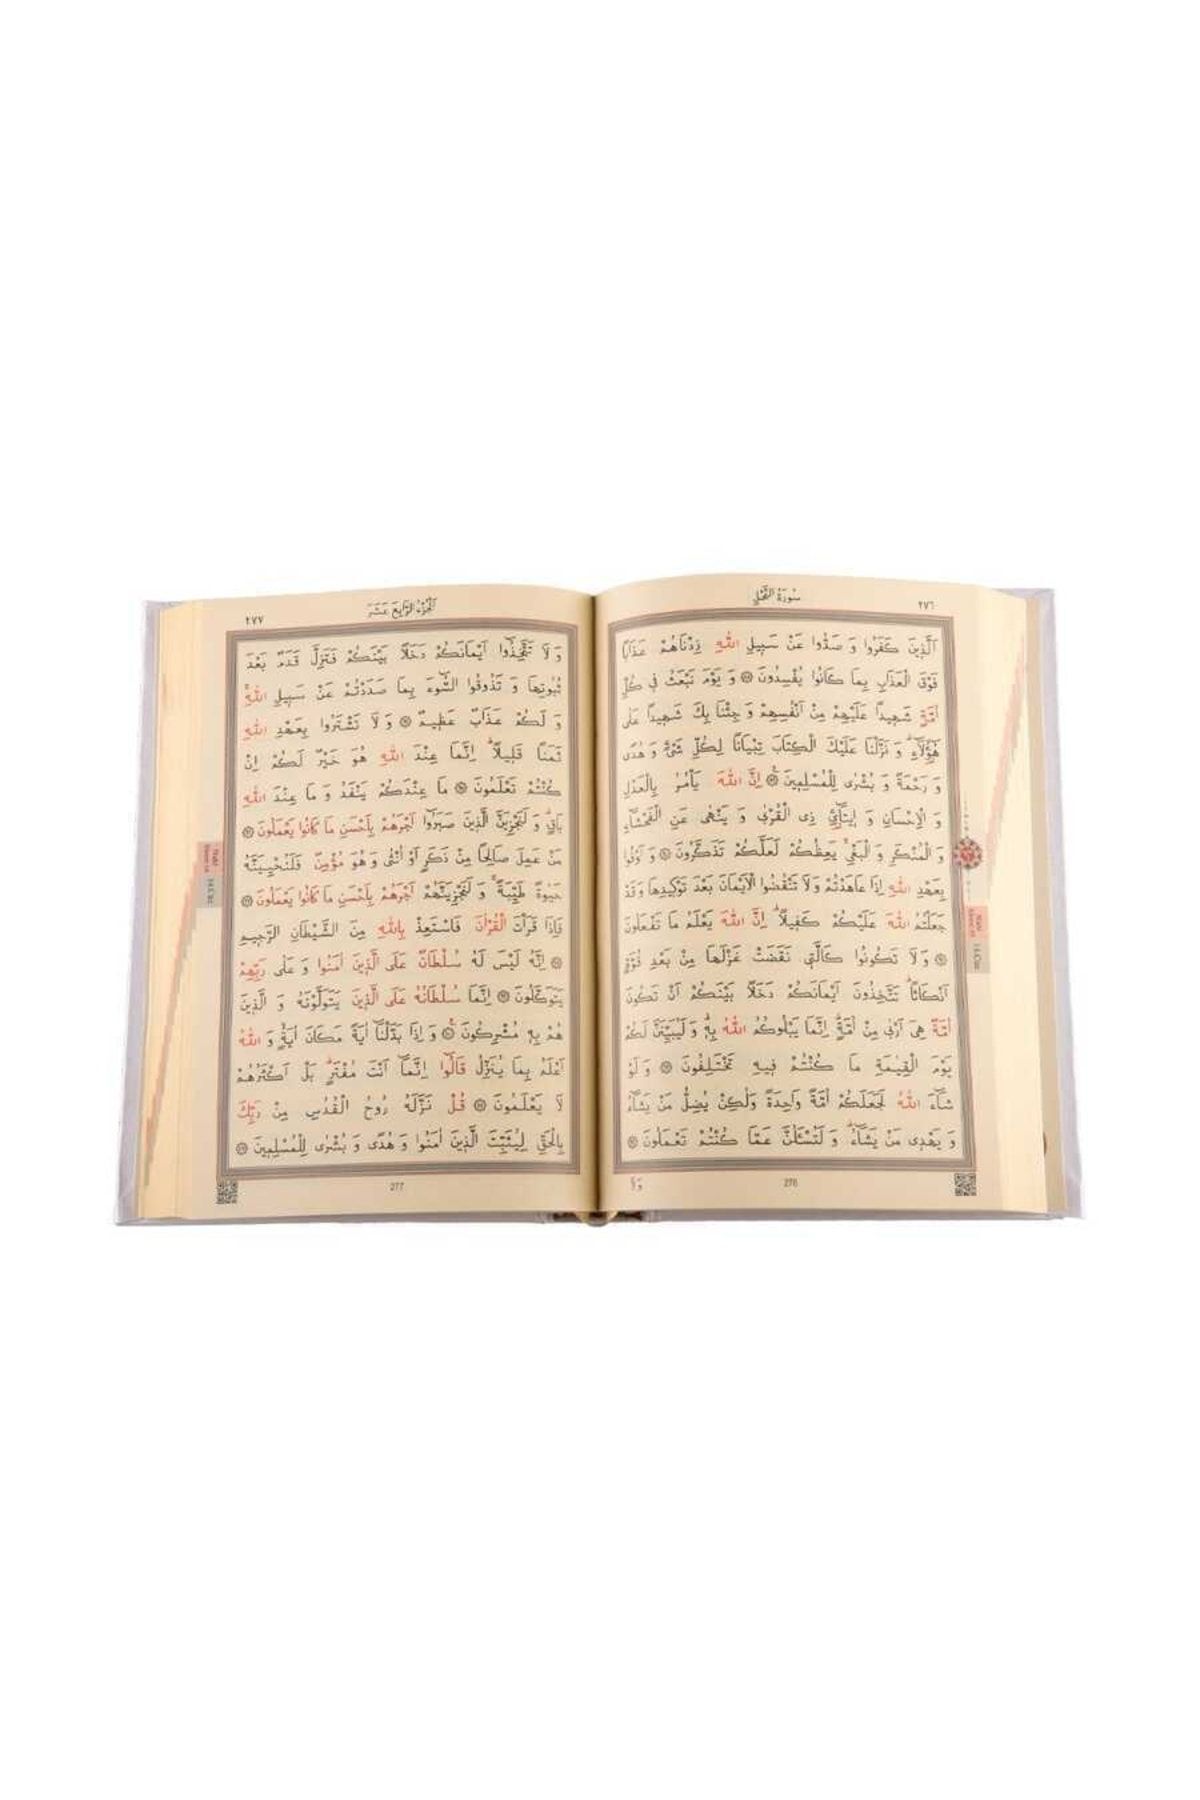 سُورَةُ النَّحْلِ
٢٧٦
اَلَّذِينَ كَفَرُوا وَ صَدُّوا عَنْ سَبِيلِ اللّٰهِ زِدْنَاهُمْ عَذَابًا
فَوْقَ الْعَذَابِ بِمَا كَانُوا يُفْسِدُونَ ۞ وَ يَوْمَ نَبْعَثُ فِي كُلِّ
اُمَّةٍ شَهِيدًا عَلَيْهِمْ مِنْ اَنْفُسِهِمْ وَ جِئْنَا بِكَ شَهِيدًا عَلٰى
هٰٓؤُلَٓاءِۜ وَ نَزَّلْنَا عَلَيْكَ الْكِتَابَ تِبْيَانًا لِكُلِّ شَيْءٍ وَ هُدًى
وَ رَحْمَةً وَ بُشْرٰى لِلْمُسْلِمِينَ ۞ اِنَّ اللّٰهَ يَأْمُرُ بِالْعَدْلِ
وَ الْاِحْسَانِ وَ اِيتَٓائِ ذِي الْقُرْبٰى وَ يَنْهٰى عَنِ الْفَحْشَٓاءِ
وَ الْمُنْكَرِ وَ الْبَغْيِۚ يَعِظُكُمْ لَعَلَّكُمْ تَذَكَّرُونَ ۞ وَ اَوْفُوا
بِعَهْدِ اللّٰهِ اِذَا عَاهَدْتُمْ وَ لَا تَنْقُضُوا الْاَيْمَانَ بَعْدَ تَوْكِيدِهَا وَ قَدْ
جَعَلْتُمُ اللّٰهَ عَلَيْكُمْ كَفِيلًاۜ اِنَّ اللّٰهَ يَعْلَمُ مَا تَفْعَلُونَ
۞ وَ لَا تَكُونُوا كَالَّتِي نَقَضَتْ غَزْلَهَا مِنْ بَعْدِ قُوَّةٍ
اَنْكَاثًاۜ تَتَّخِذُونَ اَيْمَانَكُمْ دَخَلًا بَيْنَكُمْ اَنْ تَكُونَ
اُمَّةٌ هِيَ اَرْبٰى مِنْ اُمَّةٍۜ اِنَّمَا يَبْلُوكُمُ اللّٰهُ بِهِۜ وَ لَيُبَيِّنَنَّ لَكُمْ
يَوْمَ الْقِيٰمَةِ مَا كُنْتُمْ فِيهِ تَخْتَلِفُونَ ۞ وَ لَوْ
شَٓاءَ اللّٰهُ لَجَعَلَكُمْ اُمَّةً وَاحِدَةً وَلٰكِنْ يُضِلُّ مَنْ يَشَٓاءُ
وَ يَهْدِي مَنْ يَشَٓاءُۜ وَ لَتُسْـَٔلُنَّ عَمَّا كُنْتُمْ تَعْمَلُونَ ۞
276
وَلَا
اَلْجُزْءُ الرَّابِعَ عَشَرَ
٢٧٧
وَ لَا تَتَّخِذُوٓا اَيْمَانَكُمْ دَخَلًا بَيْنَكُمْ فَتَزِلَّ قَدَمٌ بَعْدَ
ثُبُوتِهَا وَ تَذُوقُوا السُّٓوءَ بِمَا صَدَدْتُمْ عَنْ سَبِيلِ اللّٰهِۚ
وَ لَكُمْ عَذَابٌ عَظِيمٌ ۞ وَ لَا تَشْتَرُوا بِعَهْدِ اللّٰهِ
ثَمَنًا قَلِيلًاۜ اِنَّمَا عِنْدَ اللّٰهِ هُوَ خَيْرٌ لَكُمْ اِنْ
كُنْتُمْ تَعْلَمُونَ ۞ مَا عِنْدَكُمْ يَنْفَدُ وَ مَا عِنْدَ اللّٰهِ
بَاقٍۜ وَ لَنَجْزِيَنَّ الَّذِينَ صَبَرُٓوا اَجْرَهُمْ بِاَحْسَنِ مَا كَانُوا يَعْمَلُونَ ۞
مَنْ عَمِلَ صَالِحًا مِنْ ذَكَرٍ اَوْ اُنْثٰى وَ هُوَ مُؤْمِنٌ فَلَنُحْيِيَنَّهُ
حَيٰوةً طَيِّبَةًۚ وَ لَنَجْزِيَنَّهُمْ اَجْرَهُمْ بِاَحْسَنِ مَا كَانُوا يَعْمَلُونَ ۞
فَاِذَا قَرَأْتَ الْقُرْاٰنَ فَاسْتَعِذْ بِاللّٰهِ مِنَ الشَّيْطَانِ الرَّجِيمِ
۞ اِنَّهُ لَيْسَ لَهُ سُلْطَانٌ عَلَى الَّذِينَ اٰمَنُوا وَ عَلٰى رَبِّهِمْ
يَتَوَكَّلُونَ ۞ اِنَّمَا سُلْطَانُهُ عَلَى الَّذِينَ يَتَوَلَّوْنَهُ وَ الَّذِينَ
هُمْ بِهِ مُشْرِكُونَ ۞ وَ اِذَا بَدَّلْنَٓا اٰيَةً مَكَانَ اٰيَةٍۙ وَ اللّٰهُ
اَعْلَمُ بِمَا يُنَزِّلُ قَالُٓوا اِنَّمَٓا اَنْتَ مُفْتَرٍۜ بَلْ اَكْثَرُهُمْ
لَا يَعْلَمُونَ ۞ قُلْ نَزَّلَهُ رُوحُ الْقُدُسِ مِنْ رَبِّكَ
بِالْحَقِّ لِيُثَبِّتَ الَّذِينَ اٰمَنُوا وَ هُدًى وَ بُشْرٰى لِلْمُسْلِمِينَ ۞
277